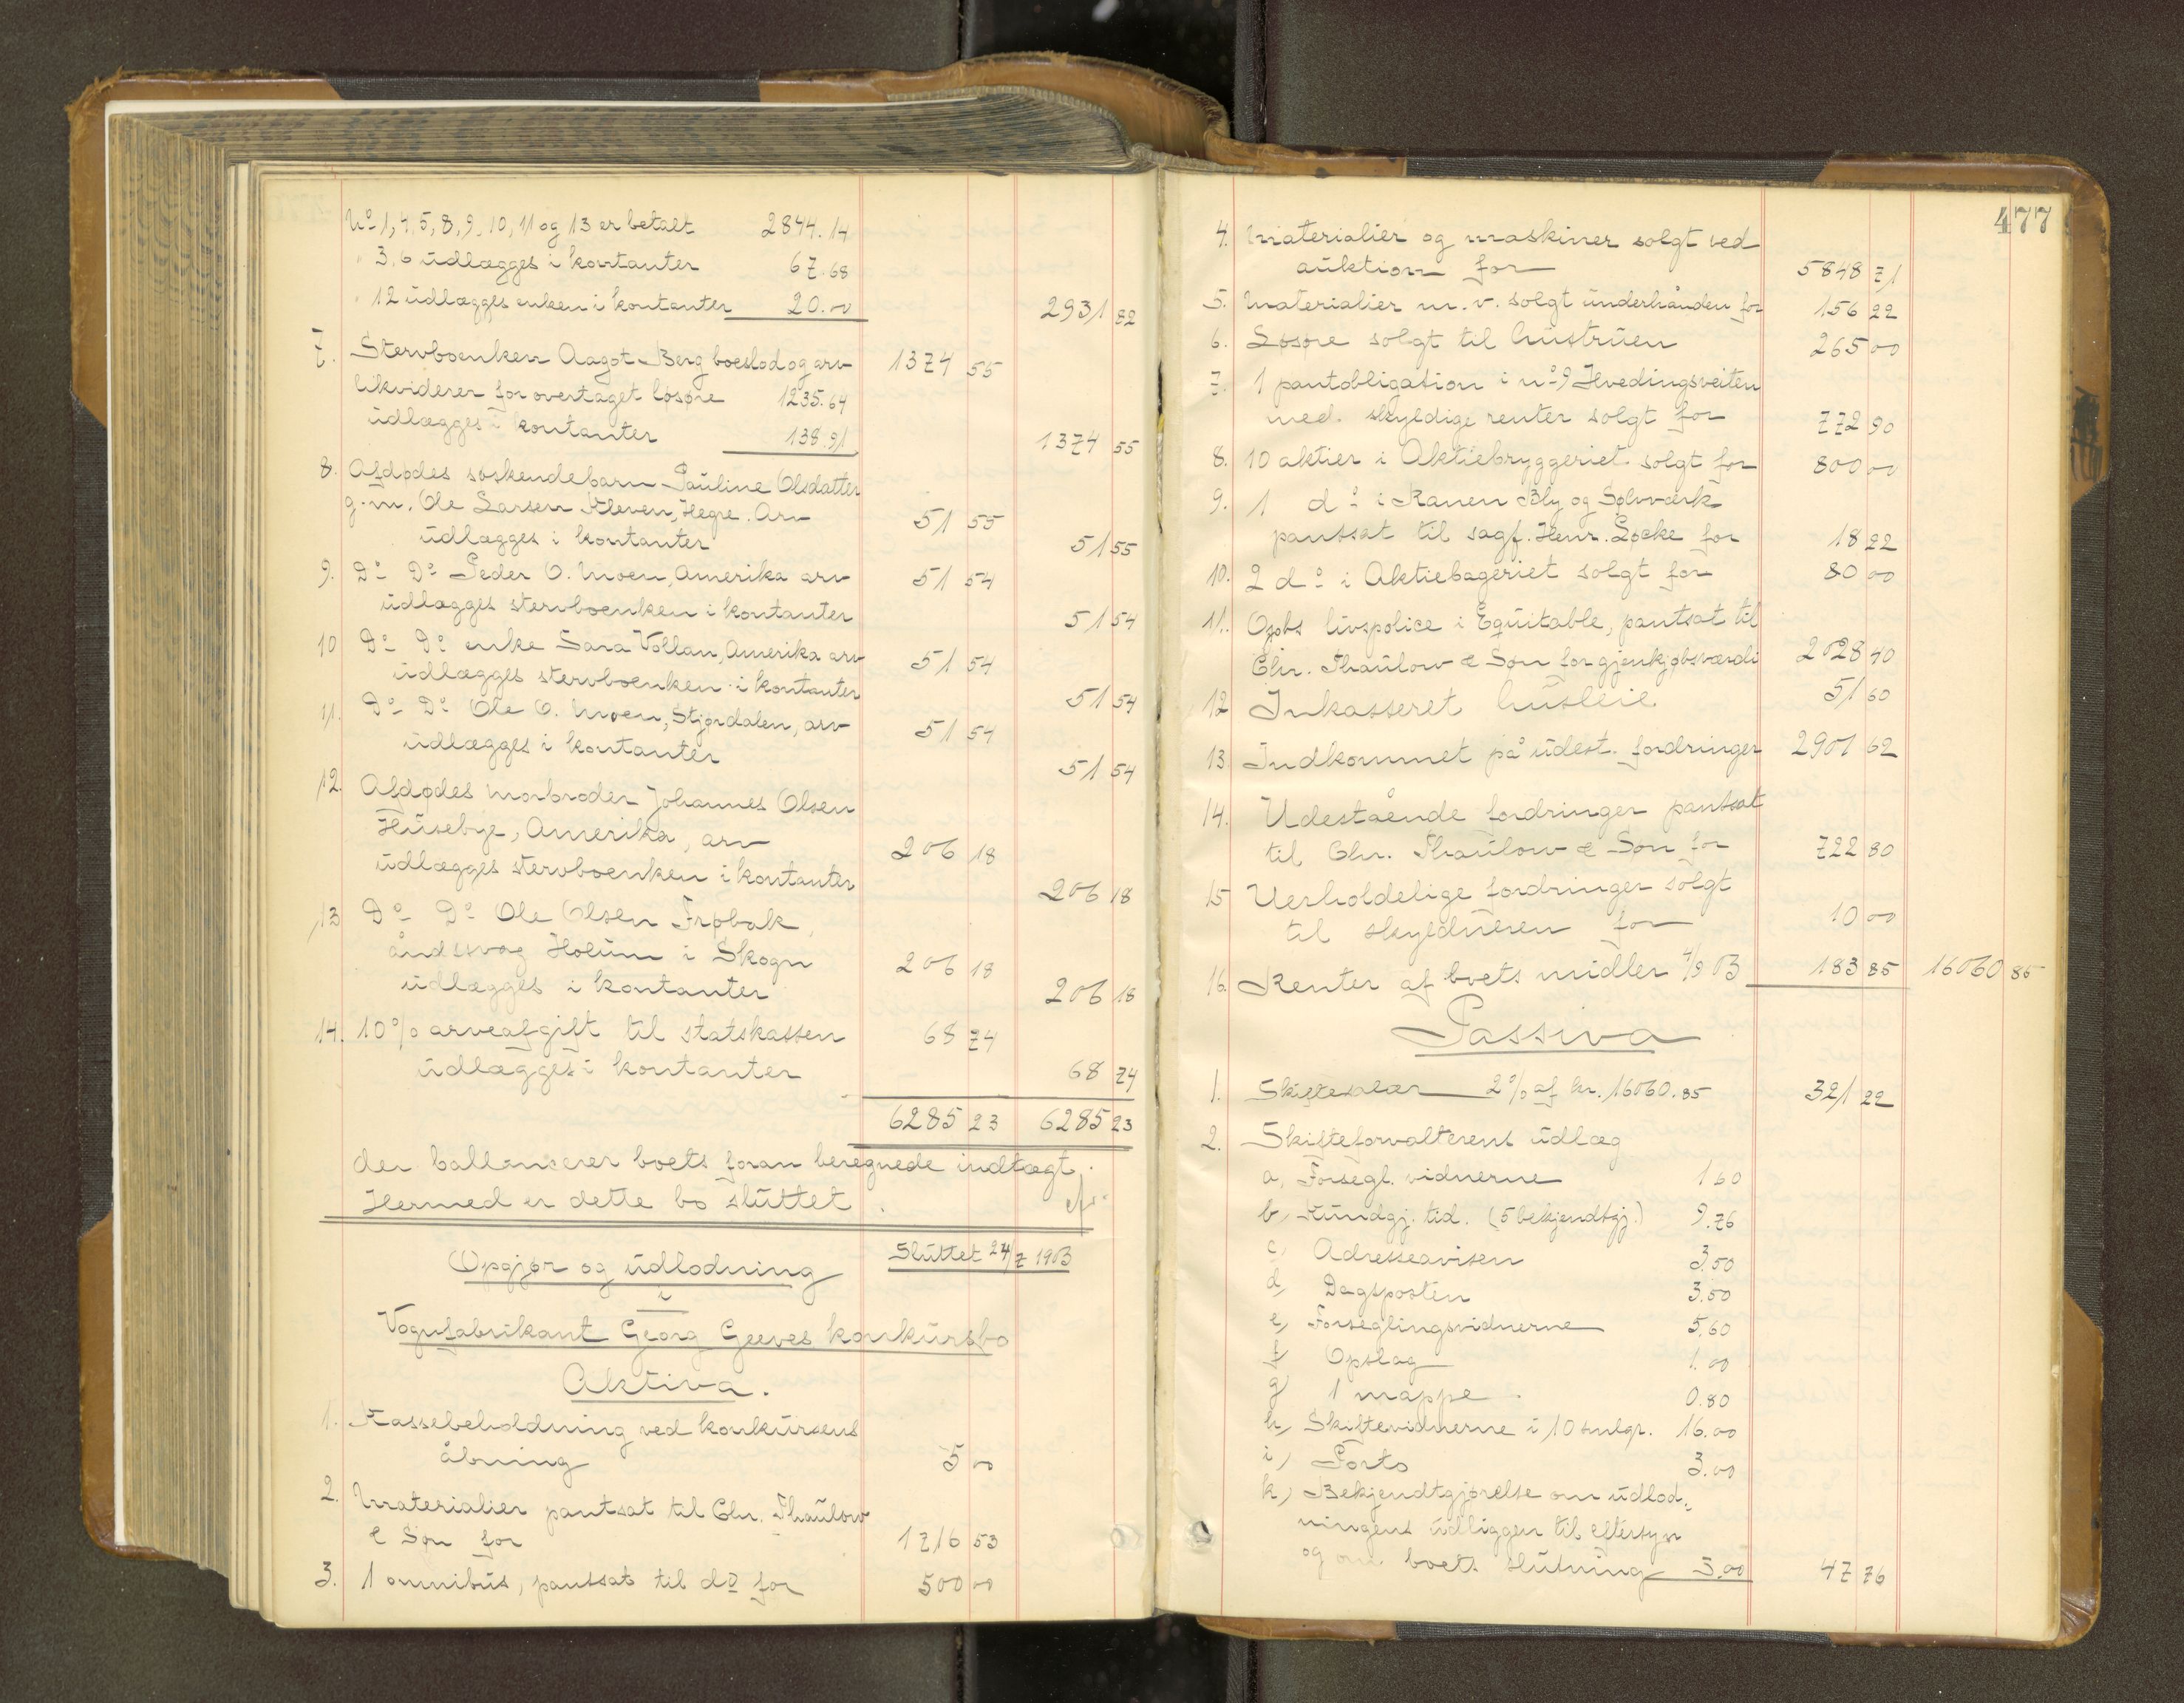 No 1, 4, 5, 8, 9, 10, 11 og 13 er betalt 2844.14
" 3, 6 udlægges i kontanter 67.68
" 12 udlægges enken i kontanter 20.00 2931 82
7. Stervboenken Aagot Berg boeslod og arv 1374 55
likviderer for overtaget løsøre 1235.64
udlægges i kontanter 138.91 1374 55
8. Afdødes søskendebarn Pauline Olsdatter
g. m. Ole Larsen Kleven, Hegre. Arv 51 55
udlægges i kontanter 51 55
9. Do Do Peder O. Moen, Amerika arv 51 54
udlægges stervboenken i kontanter 51 54
10 Do Do enke Sara Vollan, Amerika arv 51 54
udlægges stervboenken i kontanter 51 54
11. Do Do Ole O. Moen, Stjørdalen, arv 51 54
udlægges i kontanter 51 54
12. Afdødes morbroder Johannes Olsen
Husebye, Amerika, arv 206 18
udlægges stervboenken i kontanter 206 18
13 Do Do Ole Olsen Frøbak,
åndssvag Holum i Skogn 206 18
udlægges i kontanter 206 18
14. 10% arveafgift til statskassen 68 74
udlægges i kontanter 68 74
6285 23 6285 23
der ballanserer boets foran beregnede indtægt.
Hermed er dette bo sluttet.
Opgjør og udlodning Sluttet 24/7 1903
i
Vognfabrikant Georg Greves konkursbo
Aktiva.
1. Kassebeholdning ved konkursens
åbning 5 00
2. Materialier pantsat til Chr. Thaulow
& Søn for 1716 53
3. 1 omnibus, pantsat til do for 500 00
477
4. Materialier og maskiner solgt ved
auktion for 5848 71
5. Materialier m. v. solgt underhånden for 156 22
6. Løsøre solgt til hustruen 265 00
7. 1 pantobligation i no 9 Hvedingsveiten
med skyldige renter solgt for 772 90
8. 10 aktier i Aktiebryggeriet solgt for 800 00
9. 1 do i Ranen Bly og Sølvværk
pantsat til sagf. Henr. Løcke for 18 22
10. 2 do i Aktiebageriet solgt for 80 00
11. Opbs livspolice i Equitable, pantsat til
Chr. Thaulow & Søn for gjenkjøbsværdi 2028 40
12 Inkasseret husleie 51 60
13. Indkommet på udest. fordringer 2901 62
14. Udestående fordringer pantsat
til Chr. Thaulow & Søn for 722 80
15 Uerholdelige fordringer solgt
til skyldneren for 10 00
16. Renter af boets midler 4/9 03 183 85 16060 85
Passiva
1. Skiftesalær 2% af kr. 16060.85 321 22
2. Skifteforvalterens udlæg
a, Forsegl. vidnerne 1 60
b, Kundgj. tid. (5 bekjendtgj.) 9.76
c, Adresseavisen 3.50
d, Dagsposten 3.50
e, Forseglingsvidnerne 5.60
f, Opslag 1.00
g, 1 mappe 0.80
h, Skiftevidnerne i 10 smlgr. 16.00
i, Porto 3.00
k, Bekjendtgjørelse om udlod-
ningens udliggen til eftersyn
og om boets slutning 3.00 47 76